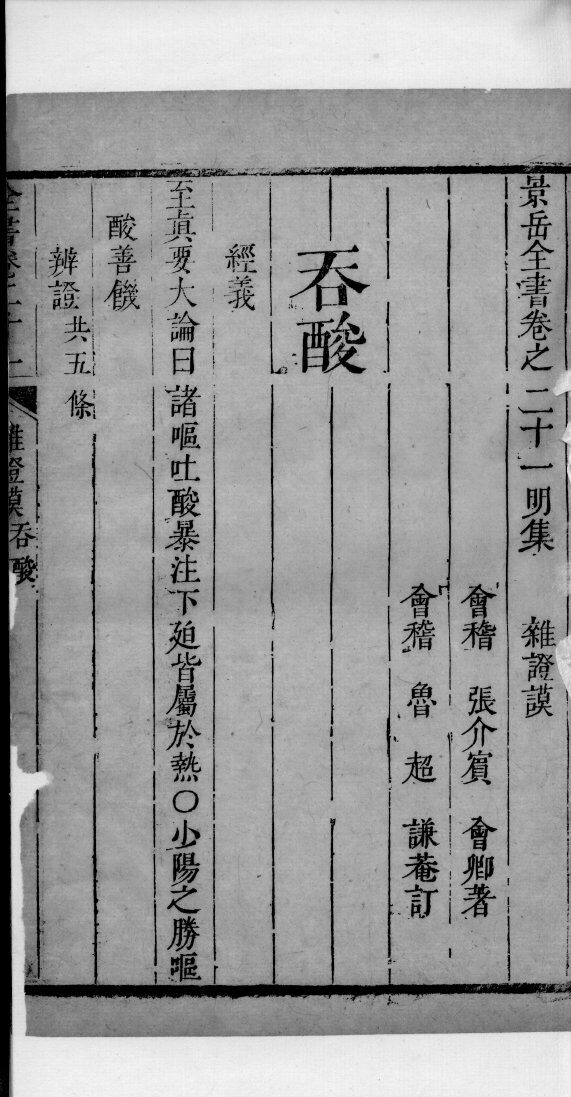 景岳全書卷之二十一明集 雜證謨
會稽 張介賓 會卿著
會稽 魯超 謙菴訂
吞酸
經義
至眞要大論曰諸嘔吐酸暴注下廹皆屬於熱〇少陽之勝嘔
酸善饑
辨證共五條
全書卷二十一 雜證謨 吞酸